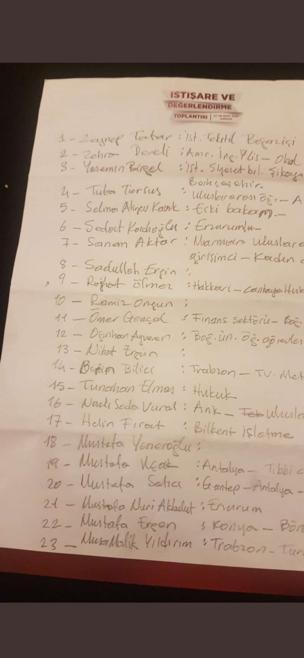 İSTİŞARE VE
DEĞERLENDİRME
TOPLANTISI
1 - Zeynep : İst. Tekstil Boğaziçi
2 - Zehra Develi : Amr. İng. - Okul
3 - Yasemin Bilgel : İst. Siyaset bil.
Bahçeşehir.
4 - Tuba Torsus : Uluslararası - A
5 - Selma Aliye Kavaf : Eski bakan -
6 - Sedat : Erzurum -
7 - Sanem Aktar : Marmara Uluslara
girişimci - Kadın
8 - Sadullah Ergin :
9 - Reşhat Ölmez : Hakkari -
10 - Ramiz Ongun :
11 - Ömer Gençal : Finans sektörü - Boğ.
12 - Oğuzhan : Boğ. ün. öğ.
13 - Nihat Ergün :
14 - Bilici : Trabzon - TV. Met
15 - Tunahan Elmas : Hukuk
16 - Seda Vural : Ank - Ulusla
17 - Helin Fırat : Bilkent İşletme
18 - Mustafa Yeneroğlu :
19 - Mustafa Uçak : Antalya - Tıbbi
20 - Mustafa : G.antep - Antalya -
21 - Mustafa Nuri Akbulut : Erzurum
22 - Mustafa Ergen : Konya -
23 - Malik Yıldırım : Trabzon -